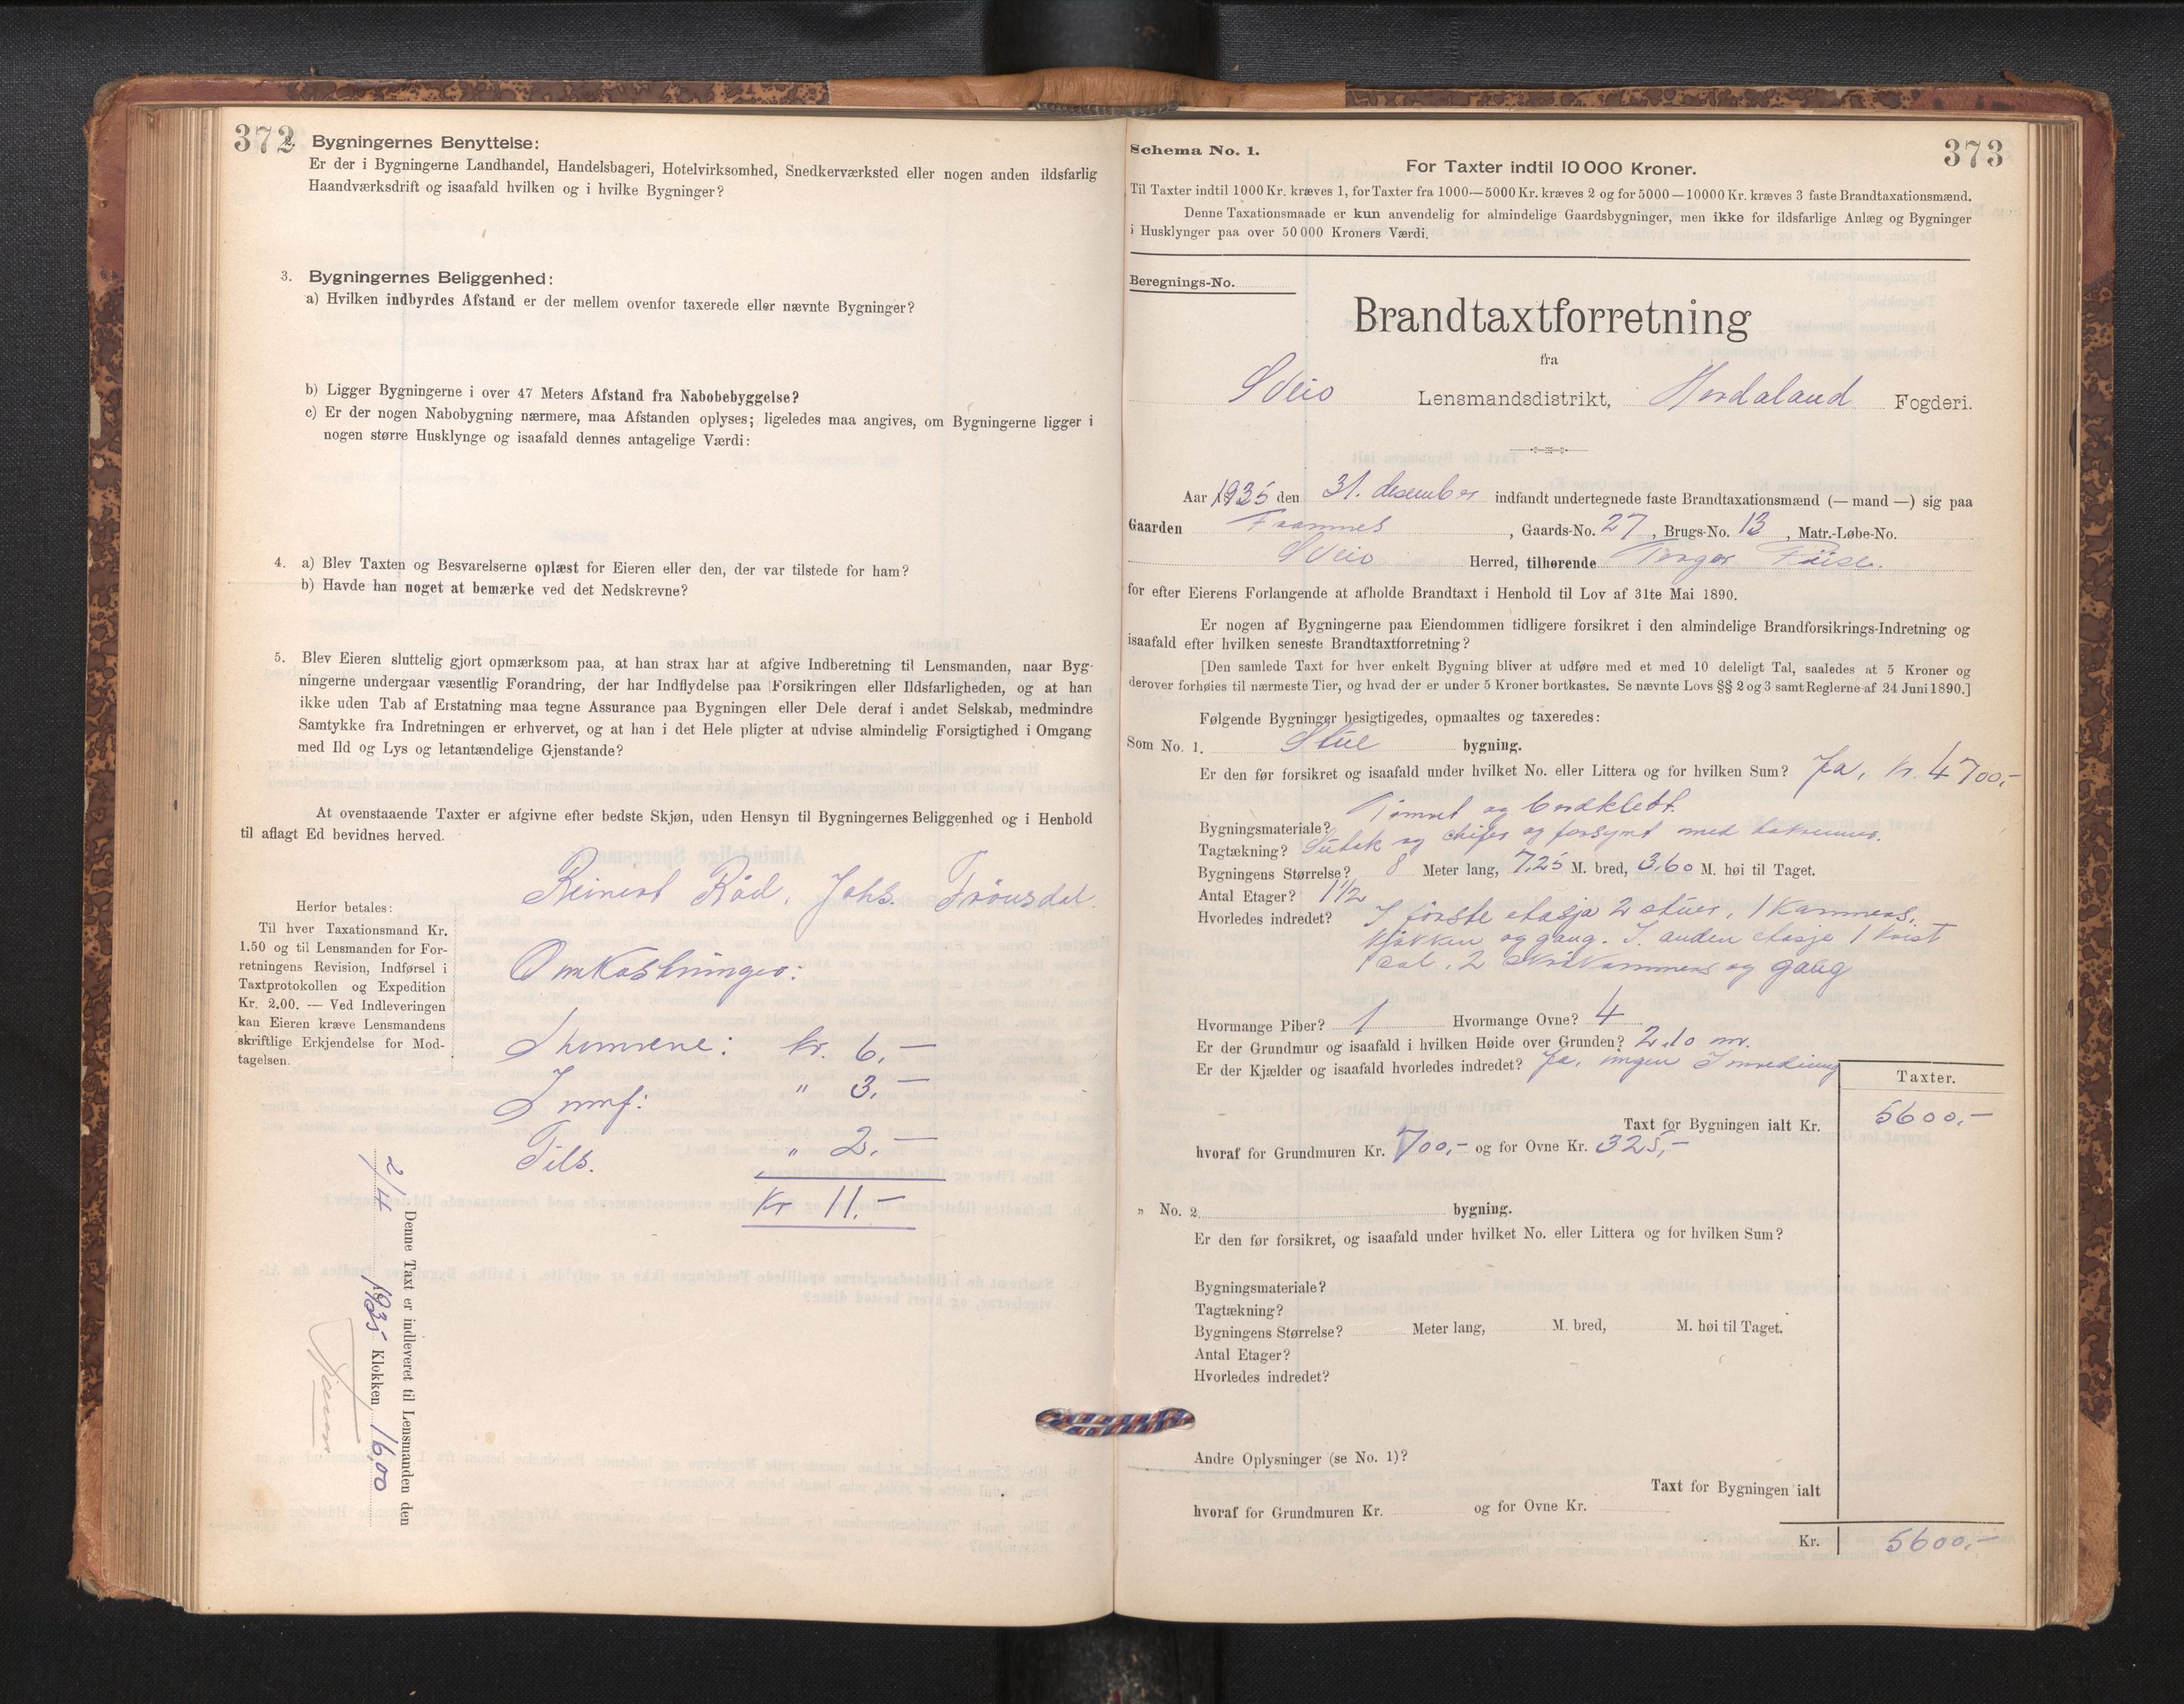 372
2. Bygningernes Benyttelse:
Er der i Bygningerne Landhandel, Handelsbageri, Hotelvirksomhed, Snedkerværksted eller nogen anden ildsfarlig
Haandværksdrift og isaafald hvilken og i hvilke Bygninger?
3. Bygningernes Beliggenhed:
a) Hvilken indbyrdes Afstand er der mellem ovenfor taxerede eller nævnte Bygninger?
b) Ligger Bygningerne i over 47 Meters Afstand fra Nabobebyggelse?
c) Er der nogen Nabobygning nærmere, maa Afstanden oplyses; ligeledes maa angives, om Bygningerne ligger i
nogen større Husklynge og isaafald dennes antagelige Værdi:
4. a) Blev Taxten og Besvarelserne oplæst for Eieren eller den, der var tilstede for ham?
b) Havde han noget at bemærke ved det Nedskrevne?
5. Blev Eieren sluttelig gjort opmærksom paa, at han strax har at afgive Indberetning til Lensmanden, naar Byg-
ningerne undergaar væsentlig Forandring, der har Indflydelse paa Forsikringen eller Ildsfarligheden, og at han
ikke uden Tab af Erstatning maa tegne Assurance paa Bygningen eller Dele deraf i andet Selskab, medmindre
Samtykke fra Indretningen er erhvervet, og at han i det Hele pligter at udvise almindelig Forsigtighed i Omgang
med Ild og Lys og letantændelige Gjenstande?
At ovenstaaende Taxter er afgivne efter bedste Skjøn, uden Hensyn til Bygningernes Beliggenhed og i Henhold
til aflagt Ed bevidnes herved.
Reinert Råd, Johs. Trönsdal.
Herfor betales:
Til hver Taxationsmand Kr.
1.50 og til Lensmanden for For-
retningens Revision, Indførsel i
Taxtprotokollen og Expedition
Kr. 2.00. — Ved Indleveringen
kan Eieren kræve Lensmandens
skriftlige Erkjendelse for Mod-
tagelsen.
Omkostninger:
kr. 6.—
Innf: " 3.—
Tils. " 2.—
Kr 11.—
Denne Taxt er indleveret til Lensmanden den
2/4 1935 Klokken 16,00
373
Schema No. 1.
For Taxter indtil 10 000 Kroner.
Til Taxter indtil 1000 Kr. kræves 1, for Taxter fra 1000—5000 Kr. kræves 2 og for 5000—10000 Kr. kræves 3 faste Brandtaxationsmænd.
Denne Taxationsmaade er kun anvendelig for almindelige Gaardsbygninger, men ikke for ildsfarlige Anlæg og Bygninger
i Husklynger paa over 50 000 Kroners Værdi.
Beregnings-No.
Brandtaxtforretning
fra
Sveio Lensmandsdistrikt, Hordaland Fogderi.
Aar 1935 den 31. desember indfandt undertegnede faste Brandtaxationsmænd (— mand —) sig paa
Gaarden , Gaards-No. 27, Brugs-No. 13, Matr.-Løbe-No.
Sveio Herred, tilhørende Torger
for efter Eierens Forlangende at afholde Brandtaxt i Henhold til Lov af 31te Mai 1890.
Er nogen af Bygningerne paa Eiendommen tidligere forsikret i den almindelige Brandforsikrings-Indretning og
isaafald efter hvilken seneste Brandtaxtforretning?
[Den samlede Taxt for hver enkelt Bygning bliver at udføre med et med 10 deleligt Tal, saaledes at 5 Kroner og
derover forhøies til nærmeste Tier, og hvad der er under 5 Kroner bortkastes. Se nævnte Lovs §§ 2 og 3 samt Reglerne af 24 Juni 1890.]
Følgende Bygninger besigtigedes, opmaaltes og taxeredes:
Som No. 1. Stue bygning.
Er den før forsikret og isaafald under hvilket No. eller Littera og for hvilken Sum? Ja, kr. 4700,-
Bygningsmateriale? Tømret og bordkledt.
Tagtækning? Sutak og skifer og forsynt med takrenner.
Bygningens Størrelse? 8 Meter lang, 7,25 M. bred, 3,60 M. høi til Taget.
Antal Etager? 1 1/2
Hvorledes indredet? I første etasje 2 stuer, 1 kammers,
kjøkken og gang. I anden etasje 1 kvist
sal, 2 skråkammers og gang
Hvormange Piber? 1 Hvormange Ovne? 4
Er der Grundmur og isaafald i hvilken Høide over Grunden? 2,10 m.
Er der Kjælder og isaafald hvorledes indredet? Ja, ingen Innredning
Taxter.
Taxt for Bygningen ialt Kr. 5600,—
hvoraf for Grundmuren Kr. 700,- og for Ovne Kr. 325,-
" No. 2 bygning.
Er den før forsikret, og isaafald under hvilket No. eller Littera og for hvilken Sum?
Bygningsmateriale?
Tagtækning?
Bygningens Størrelse? Meter lang, M. bred, M. høi til Taget.
Antal Etager?
Hvorledes indredet?
Andre Oplysninger (se No. 1)?
Taxt for Bygningen ialt
hvoraf for Grundmuren Kr. og for Ovne Kr.
Kr. 5600,—